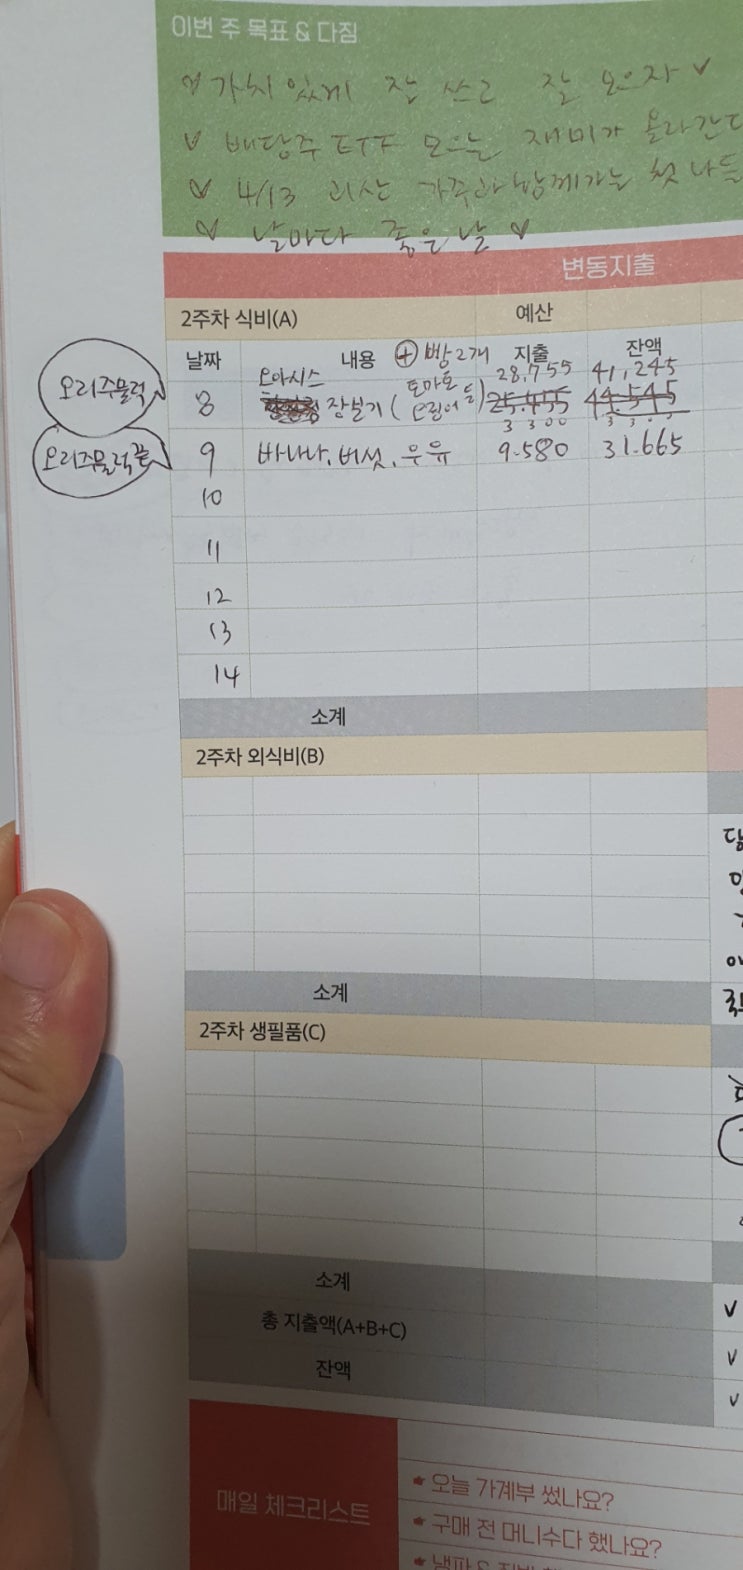 이번 주 목표 & 다짐
♡ 가치있게 잘 쓰고 잘 모으자 ♡
♡ 배당주 ETF 모으는 재미가 올라간다
♡ 4/13 괴산 가족과 함께가는 첫 나들
♡ 날마다 좋은 날 ♡
변동지출
2주차 식비(A) 예산
날짜 내용 ⊕ 빵2개 지출 잔액
오리주물럭
오아시스 토마토 28,755 41,245
8 장보기 ( 오징어 등) 25.455 44.545
3300 3300
오리주물럭끝
9 바나나, 버섯, 우유 9.580 31.665
10
11
12
13
14
소계
2주차 외식비(B)
소계
2주차 생필품(C)
소계
총 지출액(A+B+C)
잔액
매일 체크리스트
오늘 가계부 썼나요?
구매 전 머니수다 했나요?